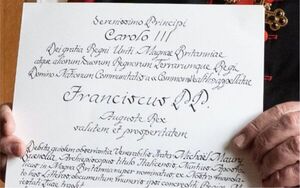 Serenissimo Principi
Carolo III
Dei gratia Regni Uniti Magnae Britanniae
atque aliorum suorum Regnorum Terrarumque Regi
Domino Nationum Communitatis a Commonwealth appellatae
Franciscus PP.
Auguste Rex
salutem et prosperitatem
Debita quidem observantia Venerabilis Frater Michael Maury
Archiepiscopus titulo Nuntius Apostolicus
in Magna Britannia per nominatur ex Nostro